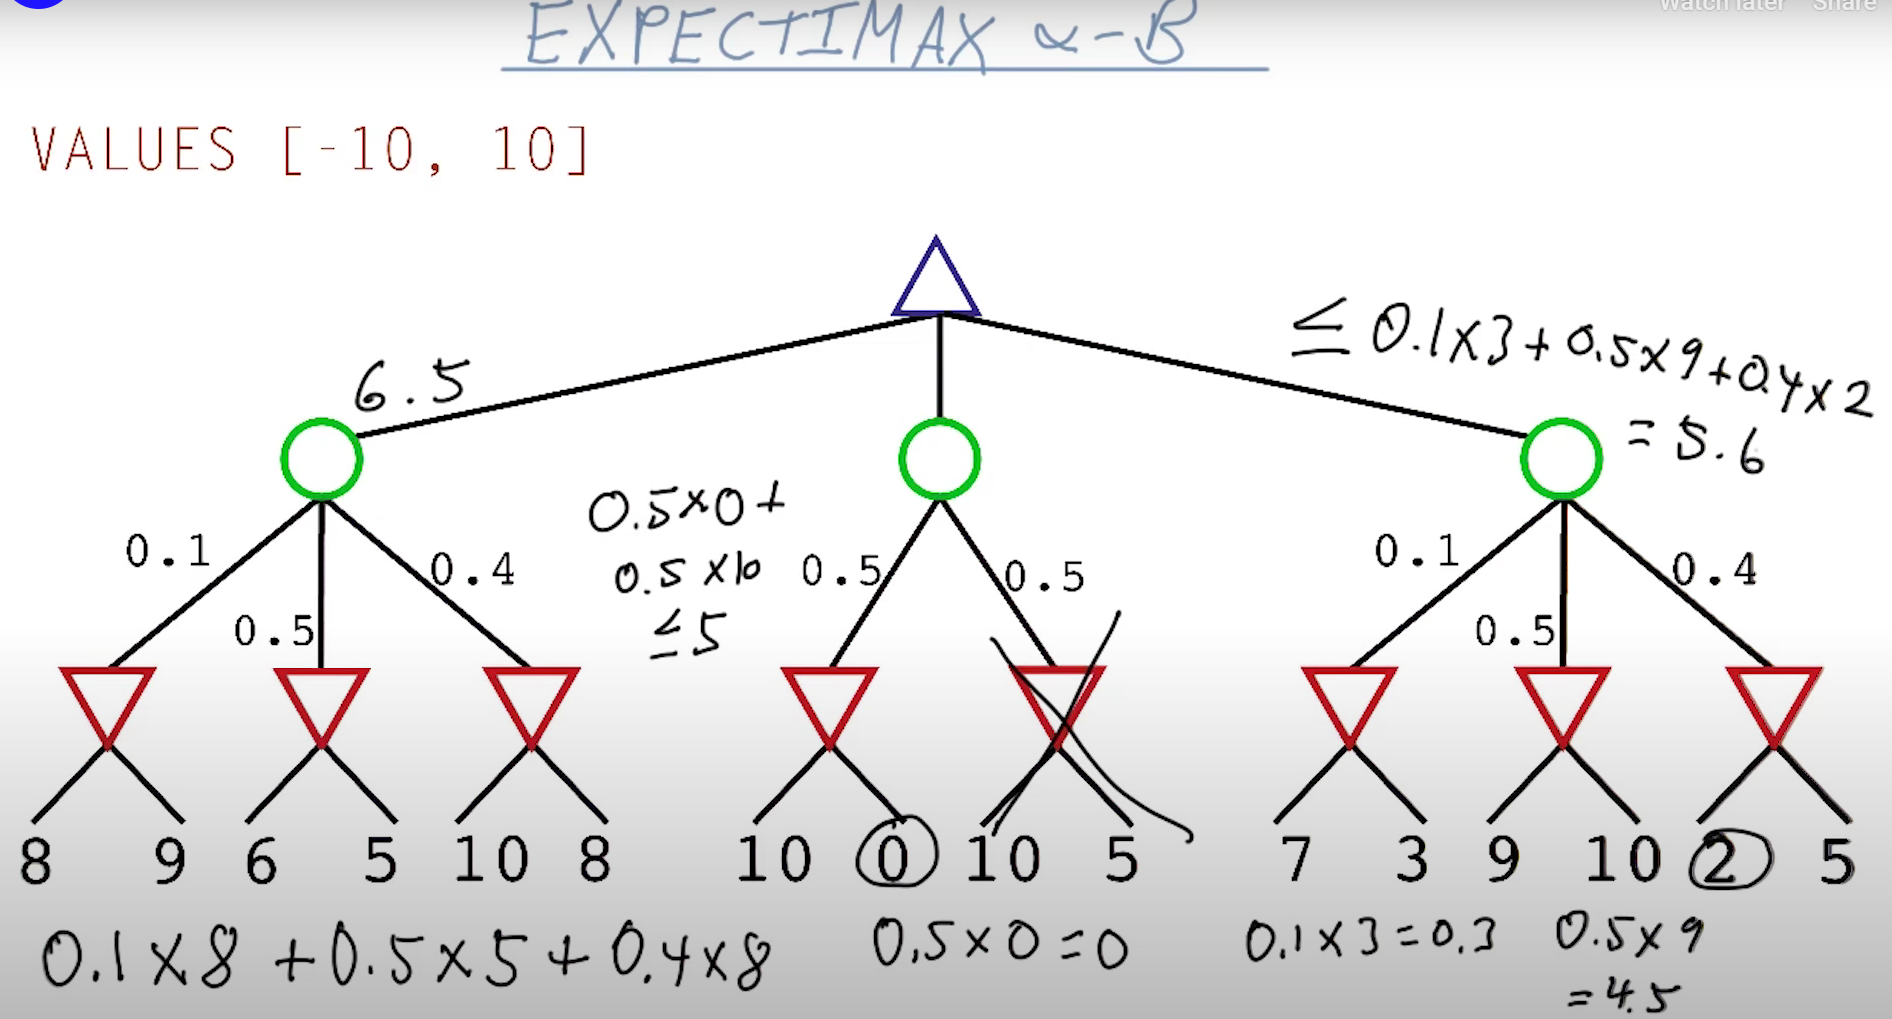 Watch later Share
EXPECTIMAX α-B
VALUES [-10, 10]
≤ 0.1×3+0.5×9+0.4×2
= 5.6
6.5
0.5×0+
0.5×10
≤5
0.1 0.5 0.4
0.5 0.5
0.1 0.5 0.4
8 9 6 5 10 8 10 0 10 5 7 3 9 10 2 5
0.1×8+0.5×5+0.4×8
0.5×0=0
0.1×3=0.3
0.5×9
=4.5